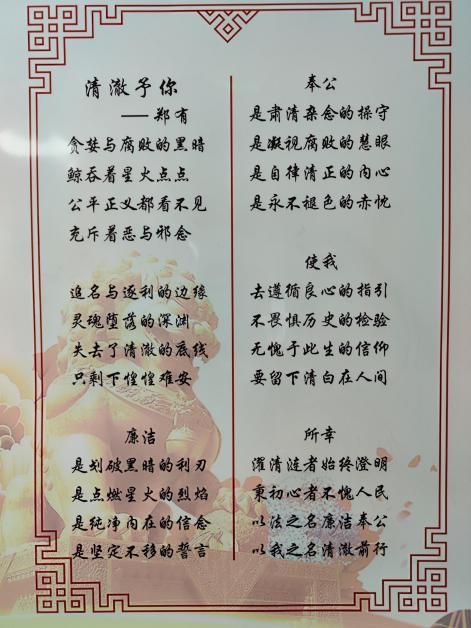 清澈予你
——郑有
贪婪与腐败的黑暗
鲸吞着星火点点
公平正义都看不见
充斥着恶与邪念
追名与逐利的边缘
灵魂堕落的深渊
失去了清澈的底线
只剩下惶惶难安
廉洁
是划破黑暗的利刃
是点燃星火的烈焰
是纯净内在的信念
是坚定不移的誓言
奉公
是肃清杂念的操守
是凝视腐败的慧眼
是自律清正的内心
是永不褪色的赤忱
使我
去遵循良心的指引
不畏惧历史的检验
无愧于此生的信仰
要留下清白在人间
所幸
濯清涟者始终澄明
秉初心者不愧人民
以法之名廉洁奉公
以我之名清澈前行